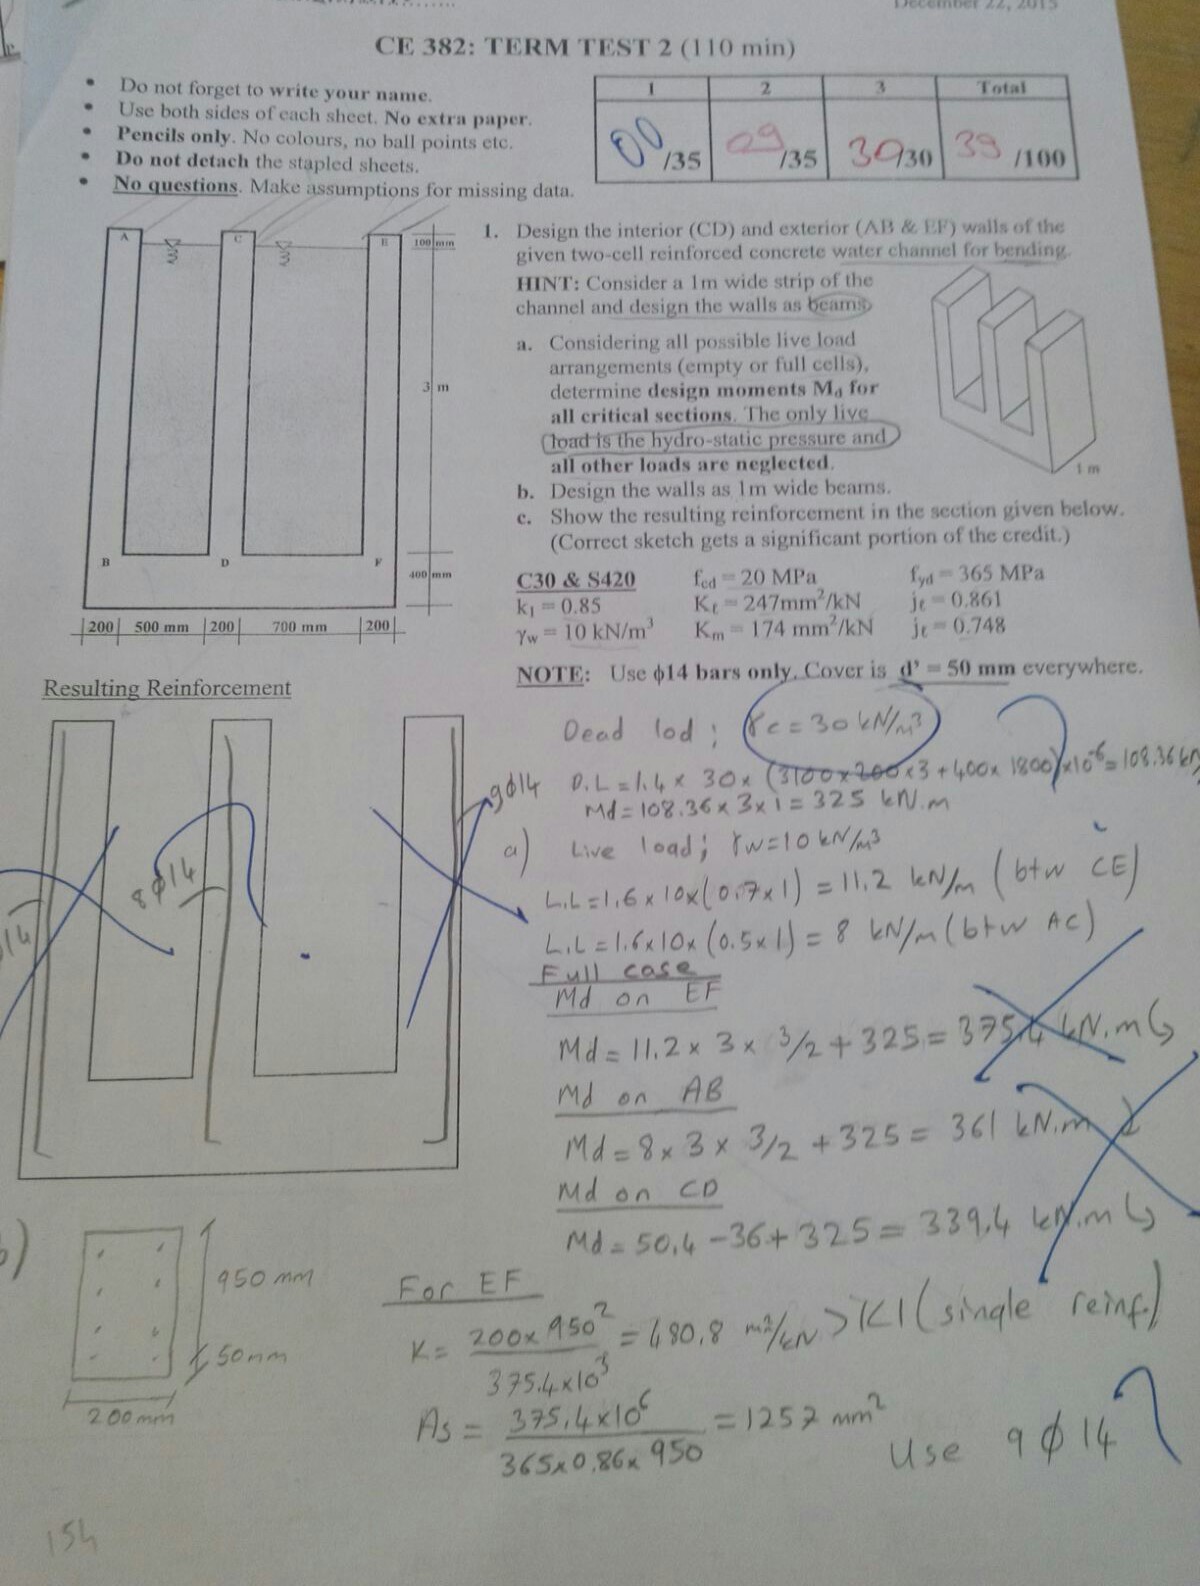 December 22, 2015
CE 382: TERM TEST 2 (110 min)
• Do not forget to write your name.
• Use both sides of each sheet. No extra paper.
• Pencils only. No colours, no ball points etc.
• Do not detach the stapled sheets.
• No questions. Make assumptions for missing data.
1 2 3 Total
00/35 09/35 30/30 39/100
A C E 100 mm
3 m
B D F
400 mm
200 500 mm 200 700 mm 200
1. Design the interior (CD) and exterior (AB & EF) walls of the
given two-cell reinforced concrete water channel for bending.
HINT: Consider a 1m wide strip of the
channel and design the walls as beams.
a. Considering all possible live load
arrangements (empty or full cells),
determine design moments Md for
all critical sections. The only live
load is the hydro-static pressure and
all other loads are neglected.
1 m
b. Design the walls as 1m wide beams.
c. Show the resulting reinforcement in the section given below.
(Correct sketch gets a significant portion of the credit.)
C30 & S420 fcd = 20 MPa fyd = 365 MPa
k1 = 0.85 Kℓ = 247mm²/kN jℓ = 0.861
γw = 10 kN/m³ Km = 174 mm²/kN jℓ = 0.748
NOTE: Use ϕ14 bars only. Cover is d' = 50 mm everywhere.
Resulting Reinforcement
9ϕ14
8ϕ14
ϕ14
Dead lod ; γc = 30 kN/m³
D.L = 1.4 x 30 x (3100x200x3 + 400x 1800) x10⁻⁶ = 108.36 kN
Md = 108.36 x 3 x 1 = 325 kN.m
a) Live load ; γw = 10 kN/m³
L.L = 1.6 x 10 x (0.7 x 1) = 11.2 kN/m (btw CE)
L.L = 1.6x10x (0.5x1) = 8 kN/m (btw AC)
Full case
Md on EF
Md = 11.2 x 3 x 3/2 + 325 = 375.4 kN.m
Md on AB
Md = 8 x 3 x 3/2 + 325 = 361 kN.m
Md on CD
Md = 50.4 - 36 + 325 = 339.4 kN.m
b)
950 mm
50mm
200mm
For EF
K = 200x 950² / 375.4x10³ = 480.8 m²/kN > Kl (single reinf.)
As = 375.4x10⁶ / 365x0.86x 950 = 1257 mm²
Use 9 ϕ 14
154